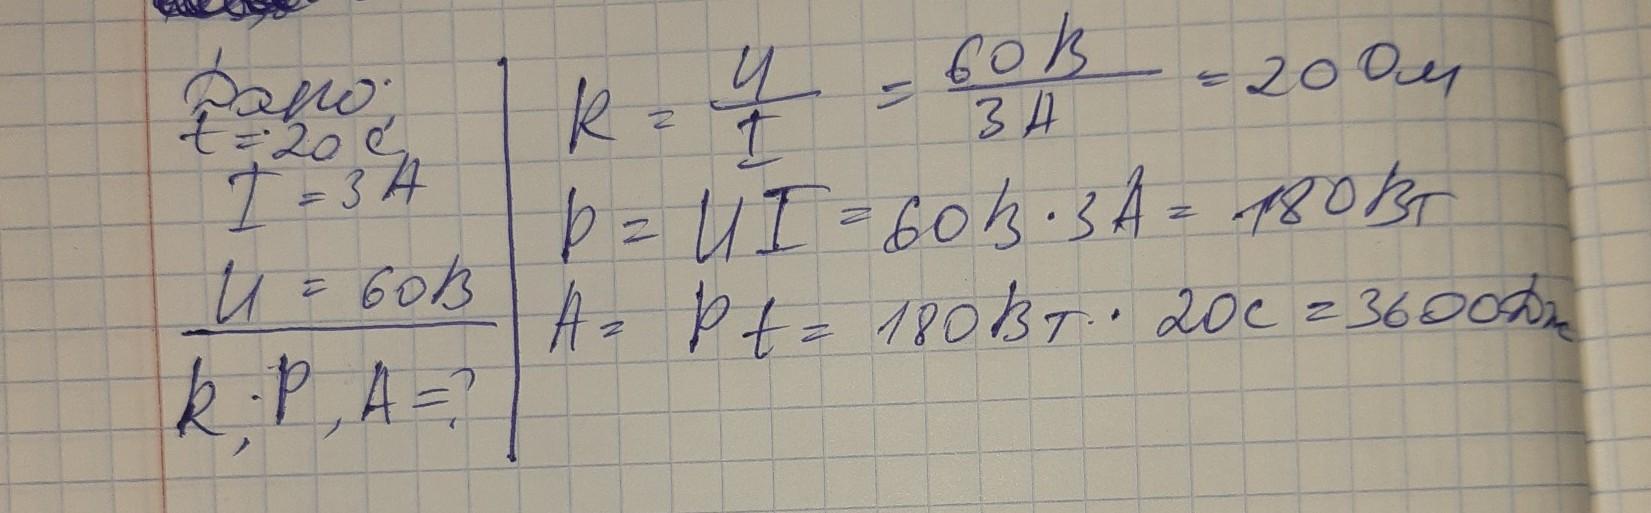 Дано:
t = 20 с
I = 3 А
U = 60 В
R, P, A = ?
R = U/I = 60 В/3 А = 20 Ом
P = UI = 60 В · 3 А = 180 Вт
A = Pt = 180 Вт · 20 с = 3600 Дж